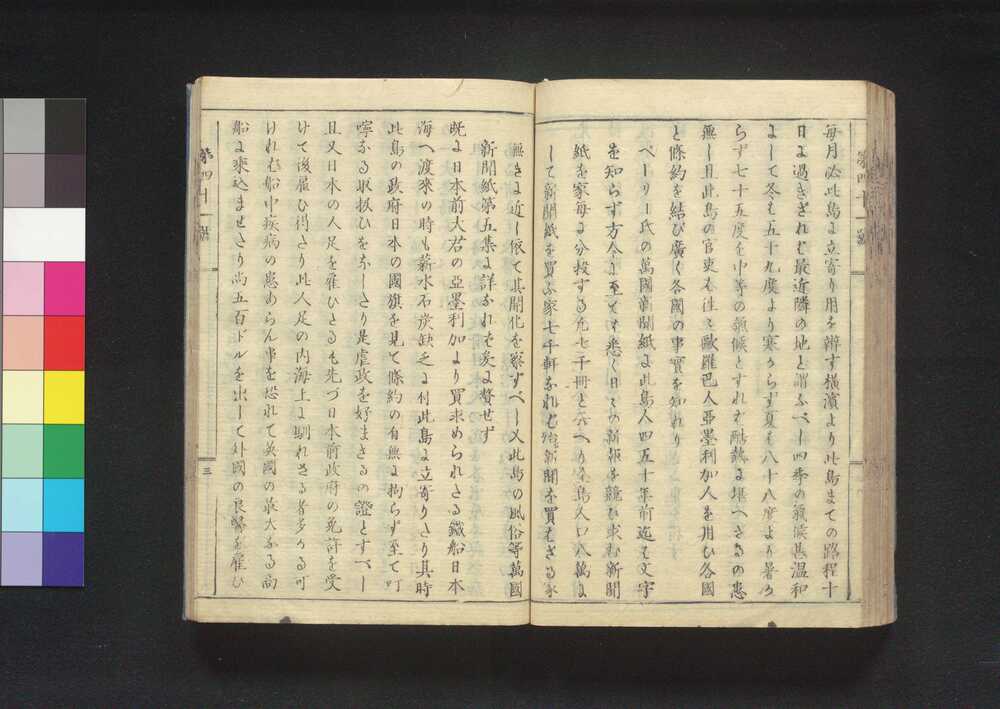 毎月必此島ゟ立寄り用を辨す横濱より此島までの路程十
日ゟ過ぎざれバ最近隣の地と謂ふべし四季の氣候甚温和
よして冬も五十九度より寒からず夏も八十八度より暑か
らず七十五度を中等の氣候とすれバ酷熱よ堪へざるの患
無し且此島の官吏も往々歐羅巴人亞墨利加人を用ひ各國
と條約を結び廣く各國の事實を知れり
ベーリー氏の萬國新聞紙よ此島人四五十年前迄も文字
を知らず方今よ至ても悉く日々の新報を競ひ求む新聞
紙を家毎よ分投する凡七千冊と云へり 島人口八萬よ
して新聞紙を買ふ家七千軒なれバ 新聞を買もざる家
無きよ近し依て其開化を察すべし又此島の風俗等萬國
新聞紙第五集よ詳なれバ爰よ贅せず
既よ日本前大君の亞墨利加より買求められたる鐵船日本
海へ渡來の時も薪水石炭缺乏よ付此島よ立寄りたり其時
此島の政府日本の國旗を見て條約の有無よ拘らず至て叮
嚀なる取扱ひをなしたり是虐政を好まざるの證とすべし
且又日本の人足を雇ひたるも先づ日本前政府の免許を受
けて後雇ひ得たり此人足の内海上よ馴れざる者多かる可
けれバ船中疾病の患あらん事を恐れて英國の最大なる商
船よ乘込ませたり尚五百ドルを出して外國の良醫を雇ひ
第四十一號
第四十一號
三